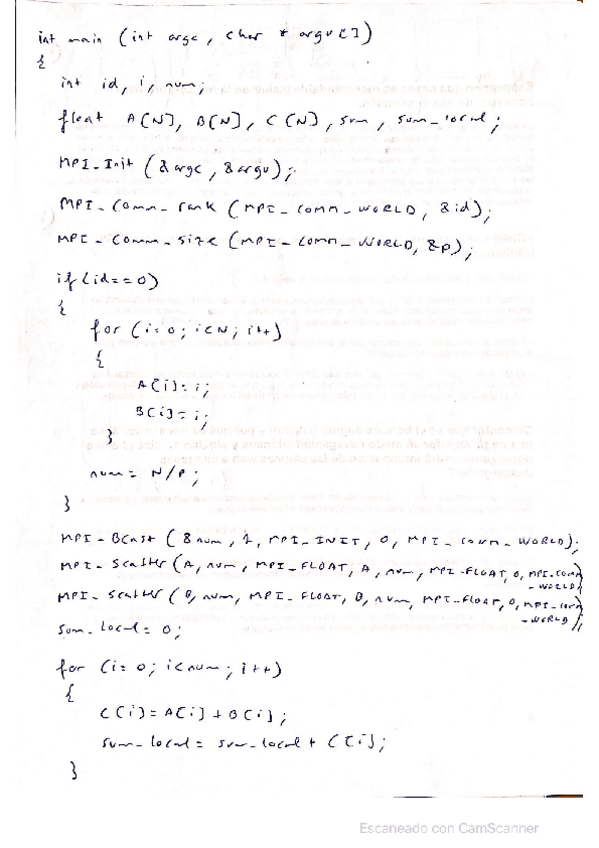 int main (int argc, char * argv[])
{
int id, i, num;
float A[N], B[N], C[N], sum, sum_local;
MPI_Init (&argc, &argv);
MPI_Comm_rank (MPI_COMM_WORLD, &id);
MPI_Comm_size (MPI_COMM_WORLD, &p);
if (id==0)
{
for (i=0; i<N; i++)
{
A[i]=i;
B[i]=i;
}
num = N/P;
}
MPI_BCast (&num, 1, MPI_INIT, 0, MPI_COMM_WORLD);
MPI_Scatter (A, num, MPI_FLOAT, A, num, MPI_FLOAT, 0, MPI_COMM
_WORLD)
MPI_Scatter (B, num, MPI_FLOAT, B, num, MPI_FLOAT, 0, MPI_COMM
_WORLD);
sum_local = 0;
for (i=0; i<num; i++)
{
C[i]=A[i]+B[i];
sum_local = sum_local + C[i];
}
Escaneado con CamScanner